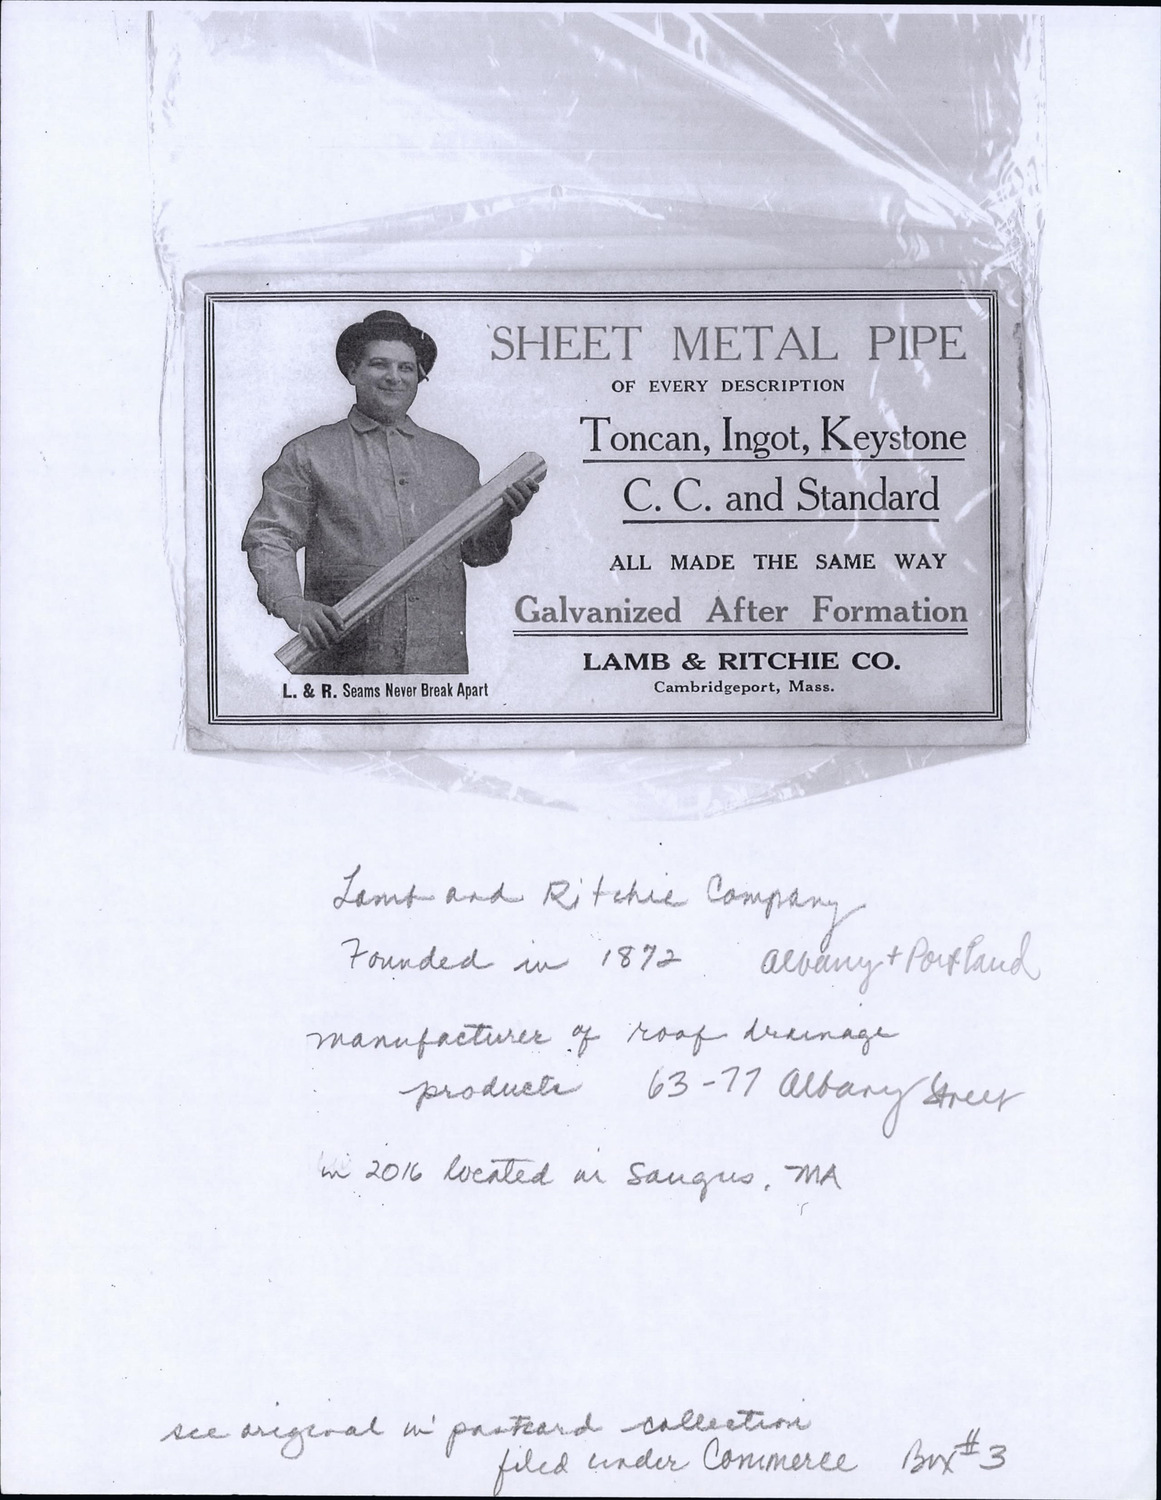 SHEET METAL PIPE
OF EVERY DESCRIPTION
Toncan, Ingot, Keystone
C. C. and Standard
ALL MADE THE SAME WAY
Galvanized After Formation
LAMB & RITCHIE CO.
Cambridgeport, Mass.
L. & R. Seams Never Break Apart
Lamb and Ritchie Company
Founded in 1872 Albany + Portland
manufacturer of roof drainage
products 63-77 Albany Street
in 2016 located in Saugus, MA
see original in postcard collection
filed under Commerce Box #3